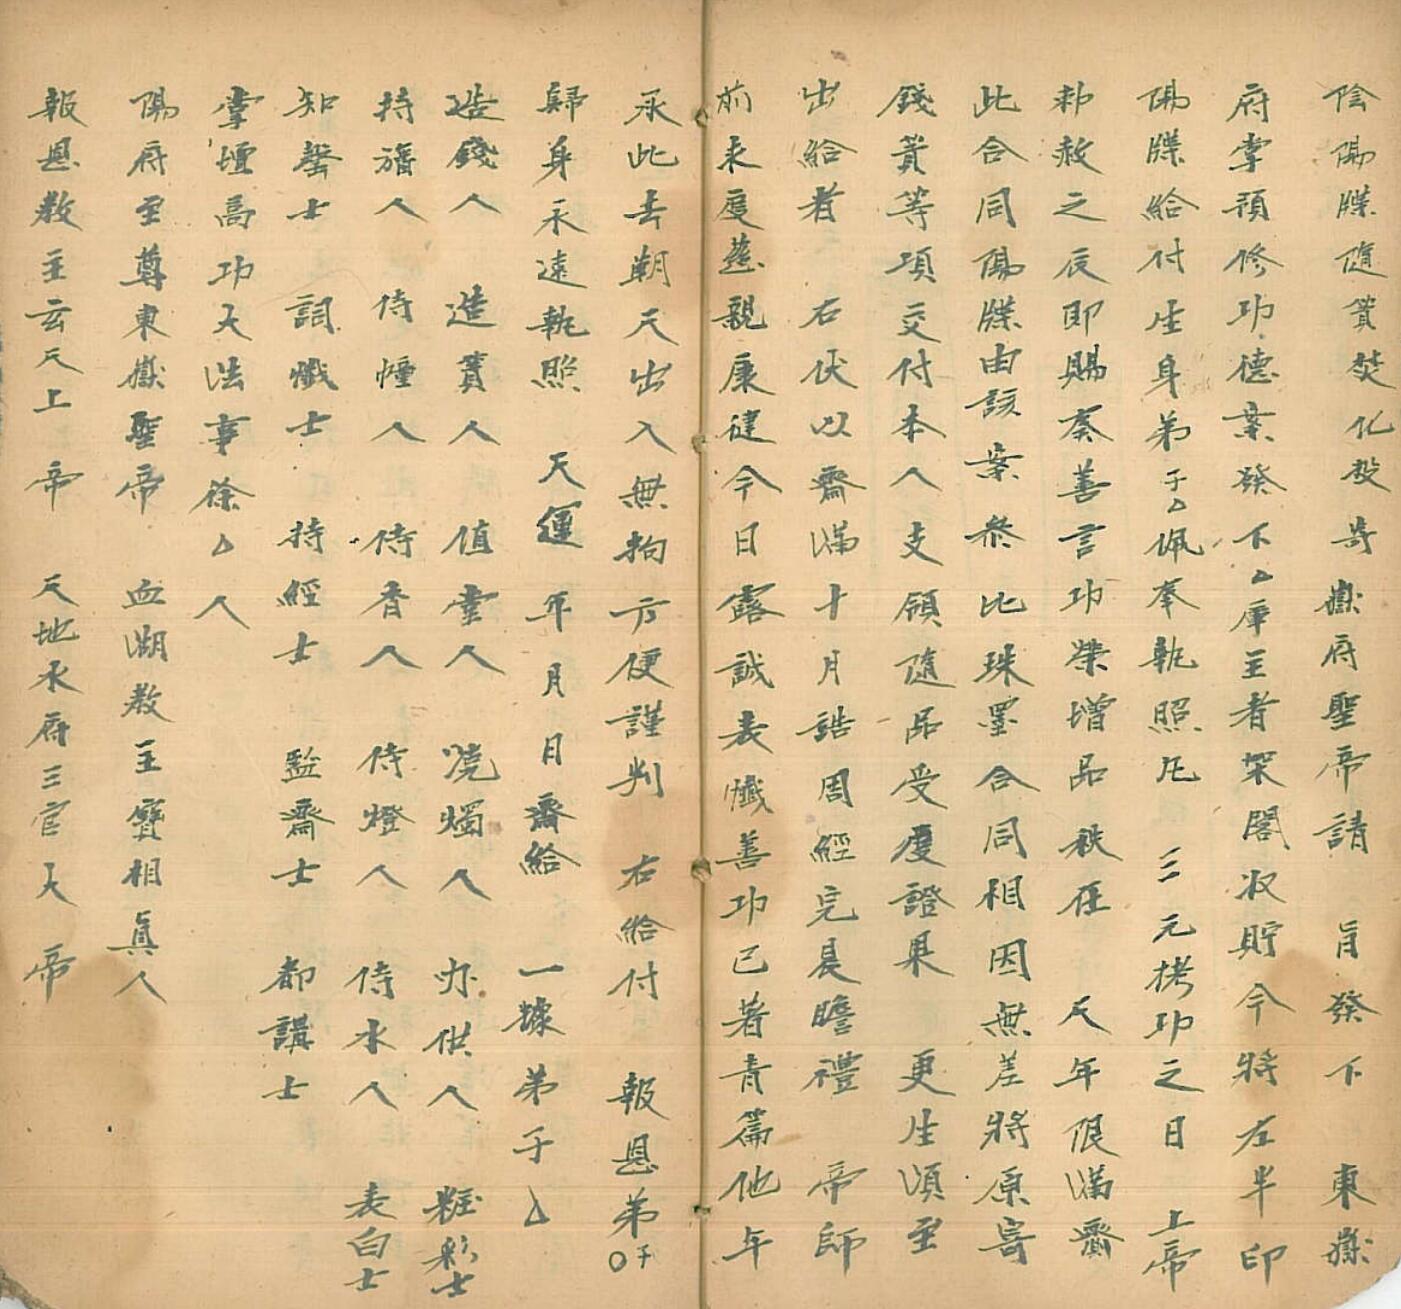 陰陽牒隨籄焚化投寄嶽府聖帝請 旨發下 東嶽
府掌預修功德案發下△庫主者架閣收貯今將左半印
陽牒給付生身弟子△佩奉執照凡 三元考功之日 上帝
勅赦之辰即賜奏善言功榮增品秩在 天年限滿齎
此合同陽牒由該案叅比珠墨合同相因無差將原寄
錢籄等項交付本人支領隨品受度證果 更生須至
出給者 右伏以齋滿十月誥周經完晨瞻禮 帝師
前來度慈親康健今日露誠表懺善功已著青篇他年
承此去朝天出入無拘方便謹判 右給付 報恩弟子〇
歸身永遠執照 天運 年 月 日齋給 一據弟子△
造錢人 造籄人 值堂人 燒燭人 办供人 粧彩士
持旛人 侍幢人 侍香人 侍燈人 侍水人 表白士
知磬士 詞懺士 持經士 監齋士 都講士
掌壇高功大法事徐△人
陽府至尊東嶽聖帝 血湖教主寶相真人
報恩教主玄天上 帝 天地水府三官大 帝